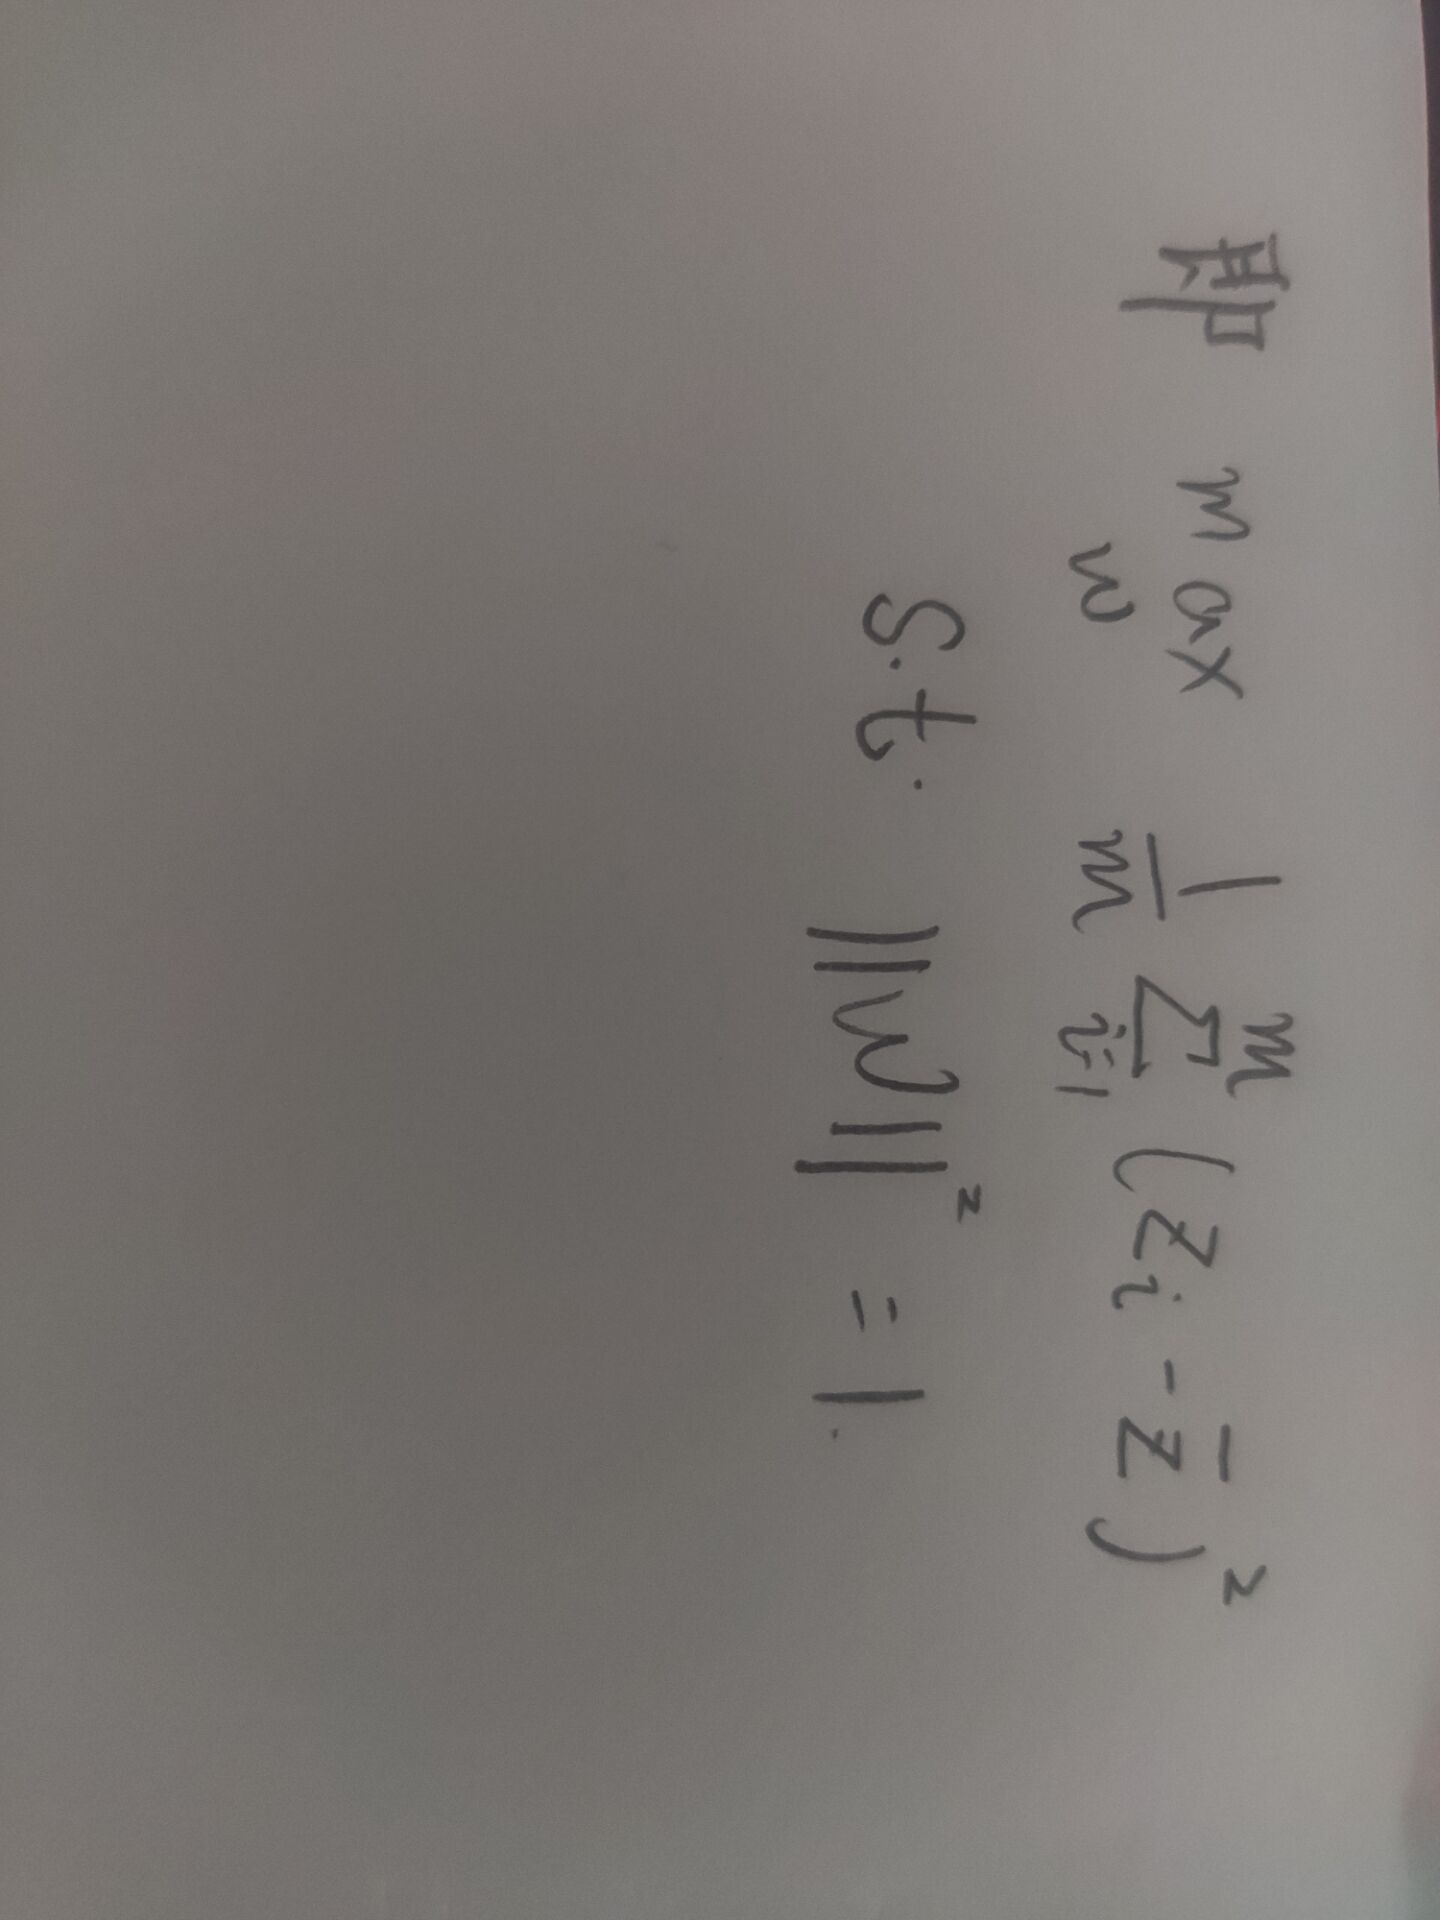 即 max_w 1/m ∑_{i=1}^{m} (z_i - z̄)²
s.t. ||w||² = 1.